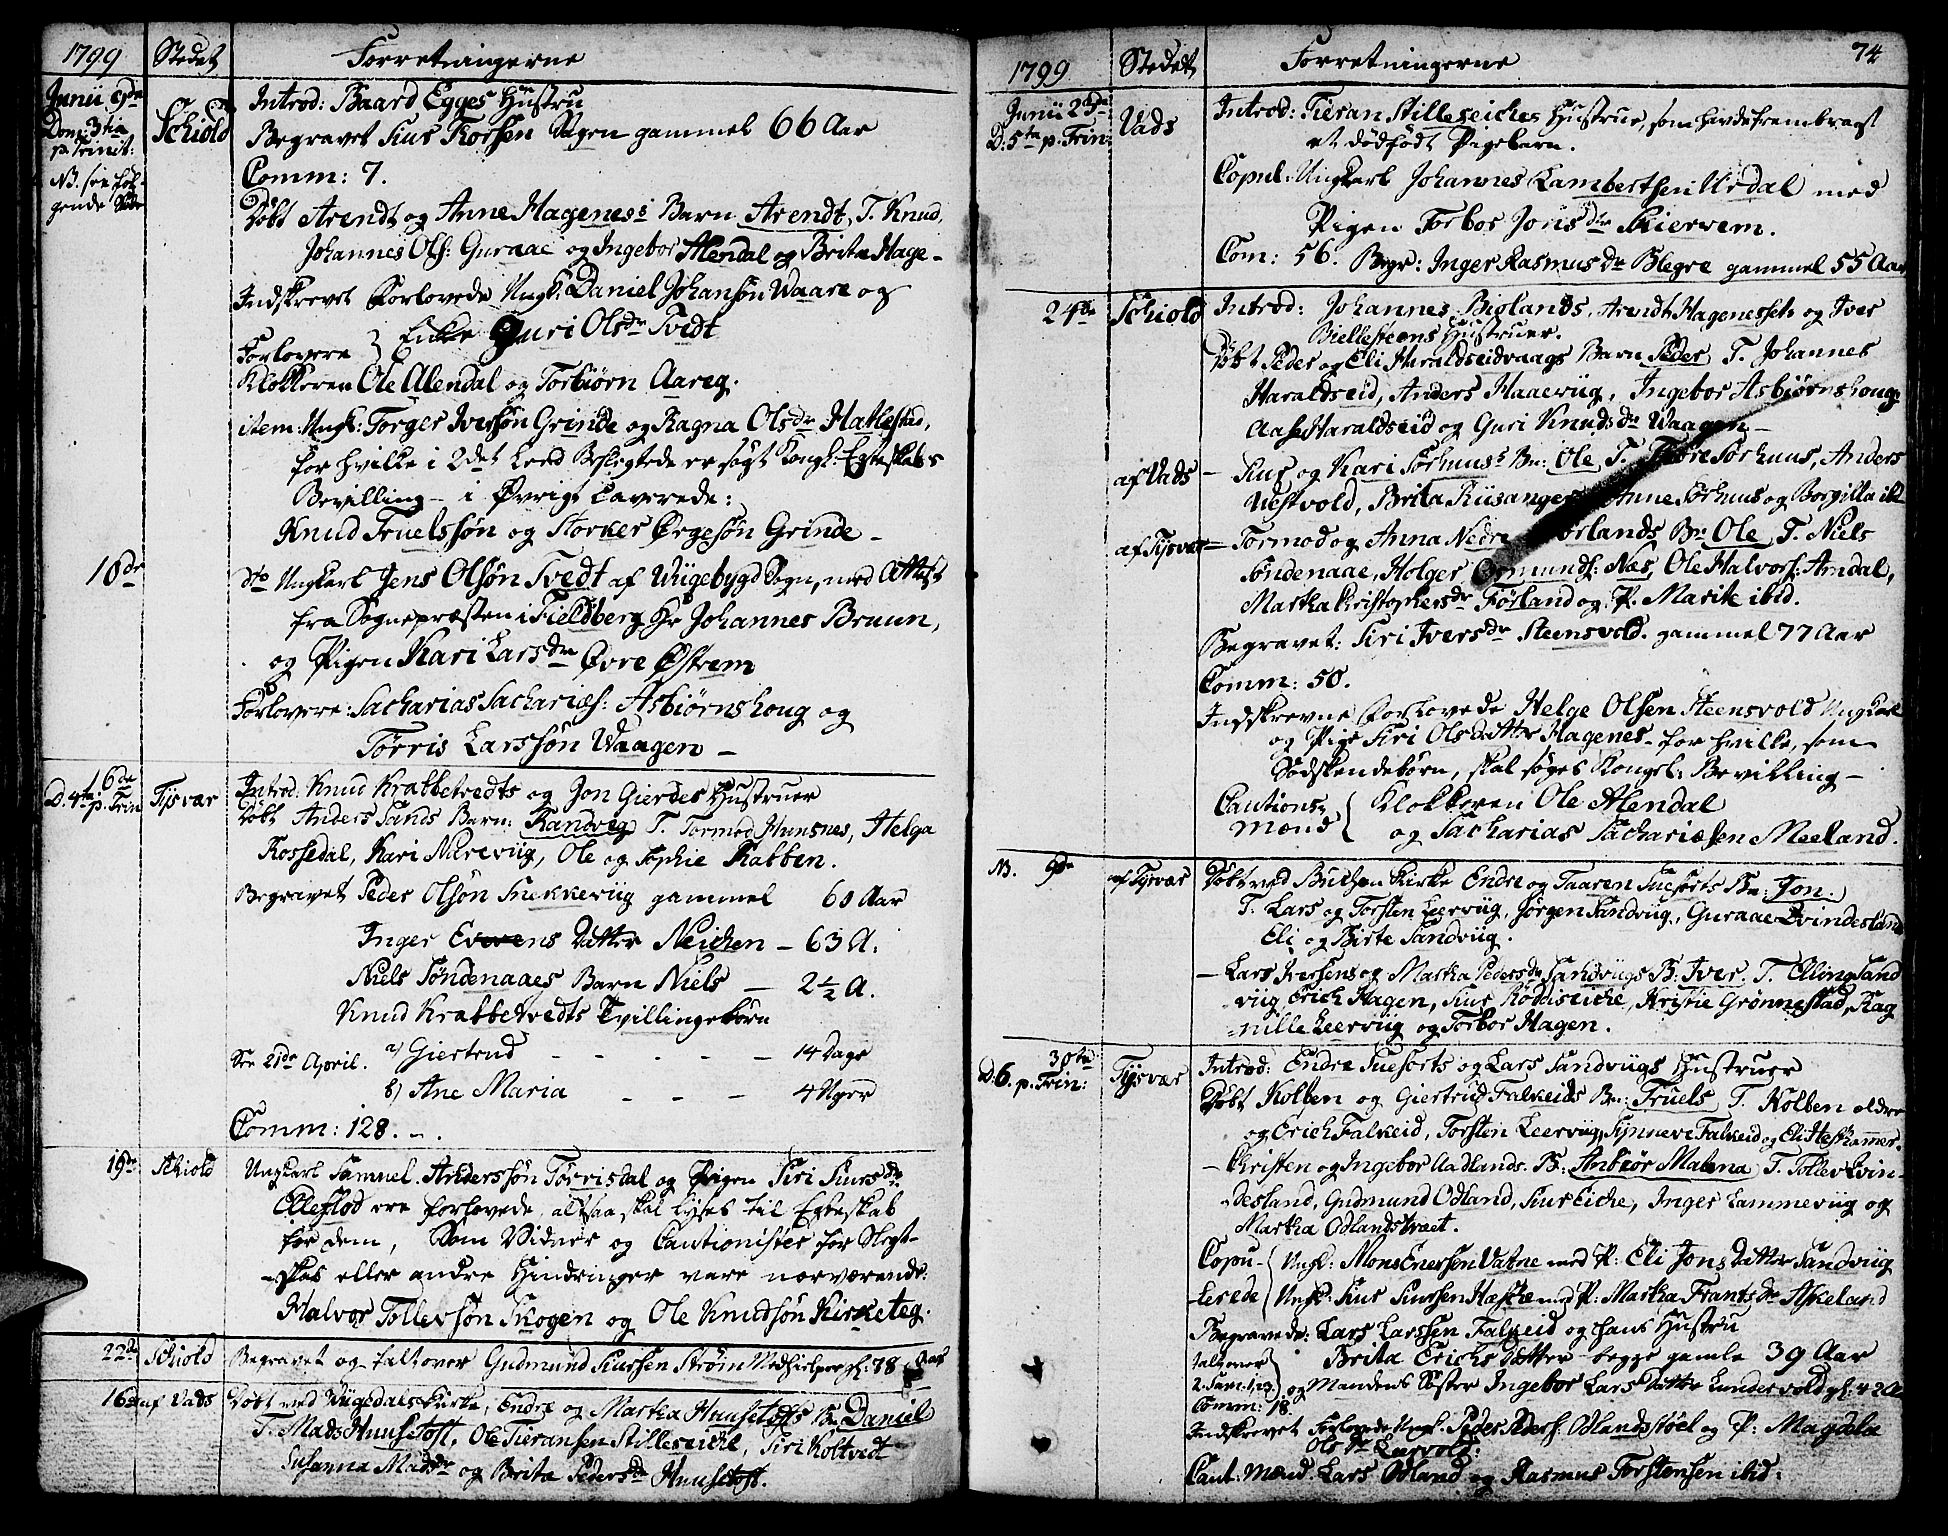 1799 Stedet Forretningerne
Junii 9de Schiold Introd: Baard Egges Hustru
Dom: 3tia p. Trinit: Begravet Siur Korsen Sagen gammel 66 Aar
NB. see føl- Comm: 7.
gende Side Døbt Arendt og Anne Hagenes's Barn Arendt, T. Knud,
Johannes Ols: Guraae og Ingebor Alendal og Brita Hage-
Indskrevet Forlovede Ungk: Daniel Johansøn Waare og
Enke Guri Olsdr Tvedt
Forlovere
Klokkeren Ole Alendal og Torbiørn Aareg.
item: Ungk: Torger Iverssøn Grinde og Ragna Olsdr Hatlestad,
for hvilke i 2det Leed Beslegtede er søgt Kongl: Egteskabs
Bevilling - i Øvrigt Caverede:
Knud Truelssøn og Storker Ørgesøn Grinde -
10de dto Ungkarl Jens Olsøn Tvedt af Wiigebygd Sogn, med Attest
fra Sognepræsten i Fieldberg Hr Johannes Bruun,
og Pigen Kari Larsdr Øvre Østrem
Forlovere: Sacharias Sachariæs: Asbiørnshoug og
Tørris Larssøn Waagen -
16de D. 4ta p. Trin Tysvær Introd. Knud Krabbetvedts og Jon Gierdes Hustruer
Døbt Anders Sands Barn: Randveg T. Tormod Hunsnes, Helga
Rossedal, Kari Narevig, Ole og Sophie Stabben.
Begravet Peder Olsøn Snekkeviig gammel 60 Aar
Inger Evevens Datter Neichen - 63 A.
Niels Søndenaaes Barn Niels - 2½ A.
Knud Krabbetvedts Tvillingebørn
See 21de April. a) Giertrud - - - - - 14 Dage
b) Ane Maria - - - 4 Uger
Comm: 128. -.
19de Schiold Ungkarl Samuel Anderssøn Tørrisdal og Pigen Siri Siursdr
Ellefløod ere forlovede, altsaa skal lyses til Egteskab
for dem, Som Vidner og Cautionister for Slegt-
skab eller andre Hindringer vare nærværende:
Halvor Tollevsøn Skogen og Ole Knudsøn Kirketeg.
22de Schiold Begravet og talt over Gudmund Siursen Strøm gl: 78 Aar
16de af Vads Døbt ved Wiigedals Kirke, Endre og Martha Huusetofts Bn Daniel
T. Mads Huusetoft, Ole Tieransen Stilleseiche, Siri Koltvedt
Susanna Madsdr og Brita Pedersdr Huusetoft.
1799 Stedet Forretningerne 74
Junii 23de Vads Introd: Tieran Stilleseiches Hustrue, som havde frembragt
D: 5ta p. Trin: et dødfødt Pigebarn.
Copul: Ungkarl Johannes Lambertsen Urdal med
Pigen Torbor Jonsdr Skiervem.
Com: 56. Begr: Inger Rasmusdr Blegre gammel 55 Aar
24de Schiold Introd: Johannes Biolands, Arendt Hagenesset og Iver
Biellesteens Hustruer.
Døbt Peder og Eli Haraldseidvaags Barn Peder T. Johannes
Haraldseid, Anders Haaeviig, Ingebor Asbiørnshoug
Aase Haraldseid og Guri Knudsdr Waagen -
af Vads - Siur og Kari Sørhuus's Bn: Ole, T. Tore Sørhuus, Anders
Uestvold, Brita Riisanger, Anne Sørhuus og Borgilla ibd
af Tysvær - Tormod og Anna Nedre Førlands Bn Ole, T. Niels
Søndenaae, Holger Osmunds: Næs, Ole Halvors: Arndal,
Martha Kristophersdr Førland og P. Marite ibid.
Begravet: Siri Iversdr Steensvold gammel 77 Aar
Comm: 50.
Indskrevne Forlovede Helge Olsen Steensvold Ungkarl
og Pige Siri Olsdatter Hagenes - for hvilke, som
Sødskendebørn, skal søges Kongel: Bevilling -
Cautions- Klokkeren Ole Alendal
mænd og Sacharias Sachariæsen Meeland.
NB. 9de af Tysvær Døbt ved Buchen Kirke Endre og Taaren Sueforts Bn: Jon.
T. Lars og Torsten Leerviig, Jørgen Sandviig, Guraae Qvindesland
Eli og Birte Sandviig.
- Lars Iversens og Martha Pedersdr Sandviigs B: Iver. T. Elling Sand
viig, Erich Hagen, Siur Røddiseiche, Kristie Grønnestad, Rag
nille Leerviig og Torbor Hagen.
30te D: 6. p. Trin: Tysvær Introd: Endre Sueforts og Lars Sandviigs Hustruer
Døbt Kolben og Giertrud Falkeids Bn: Truels T. Kolben eldre
og Erich Falkeid, Torsten Leerviig, Synneve Falkeid og Eli Heskammer.
- Kristen og Ingebor Aadlands. B: Anbiør Malena T. Tollev Qvin-
desland, Gudmund Odland, Siur Eiche, Inger Lammeviig og
Martha Odlandstræet.
Copu- Ungk: Mons Enersen Vatne med P: Eli Jons Datter Sandviig
lerede Ungk: Siur Siursen Hæskie med P: Martha Frantsdr Askeland
Begravede: Lars Larssen Falkeid og hans Hustru
talt over Brita Erichs Datter begge gamle 39 Aar
2. Sam. 1, 23. og Mandens Søster Ingebor Lars Datter Lundervold gl: 42 A
Comm: 18.
Indskrevet Forlovede Ungk: Peder Peders: Odlandsstøel og P: Magdele
Ols Dr Leervold:
Caut: Mænd Lars Odland og Rasmus Torstensen ibid: